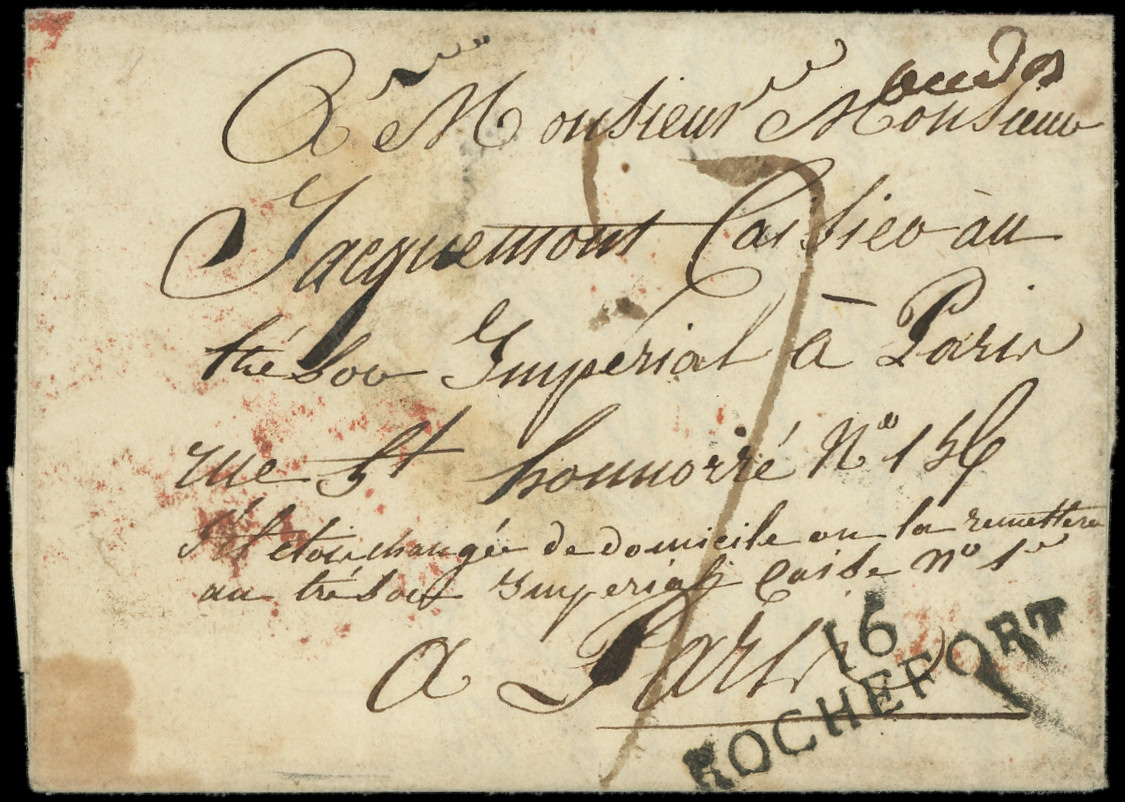 A Monsieur Monsieur
Jacquemont Caissier au
trésor Impérial à Paris
rue St honnorré N° 156
S'il etoit changée de domicile on la remettera
au trésor Imperial Caisse N° 1er
a Paris
16
ROCHEFORT